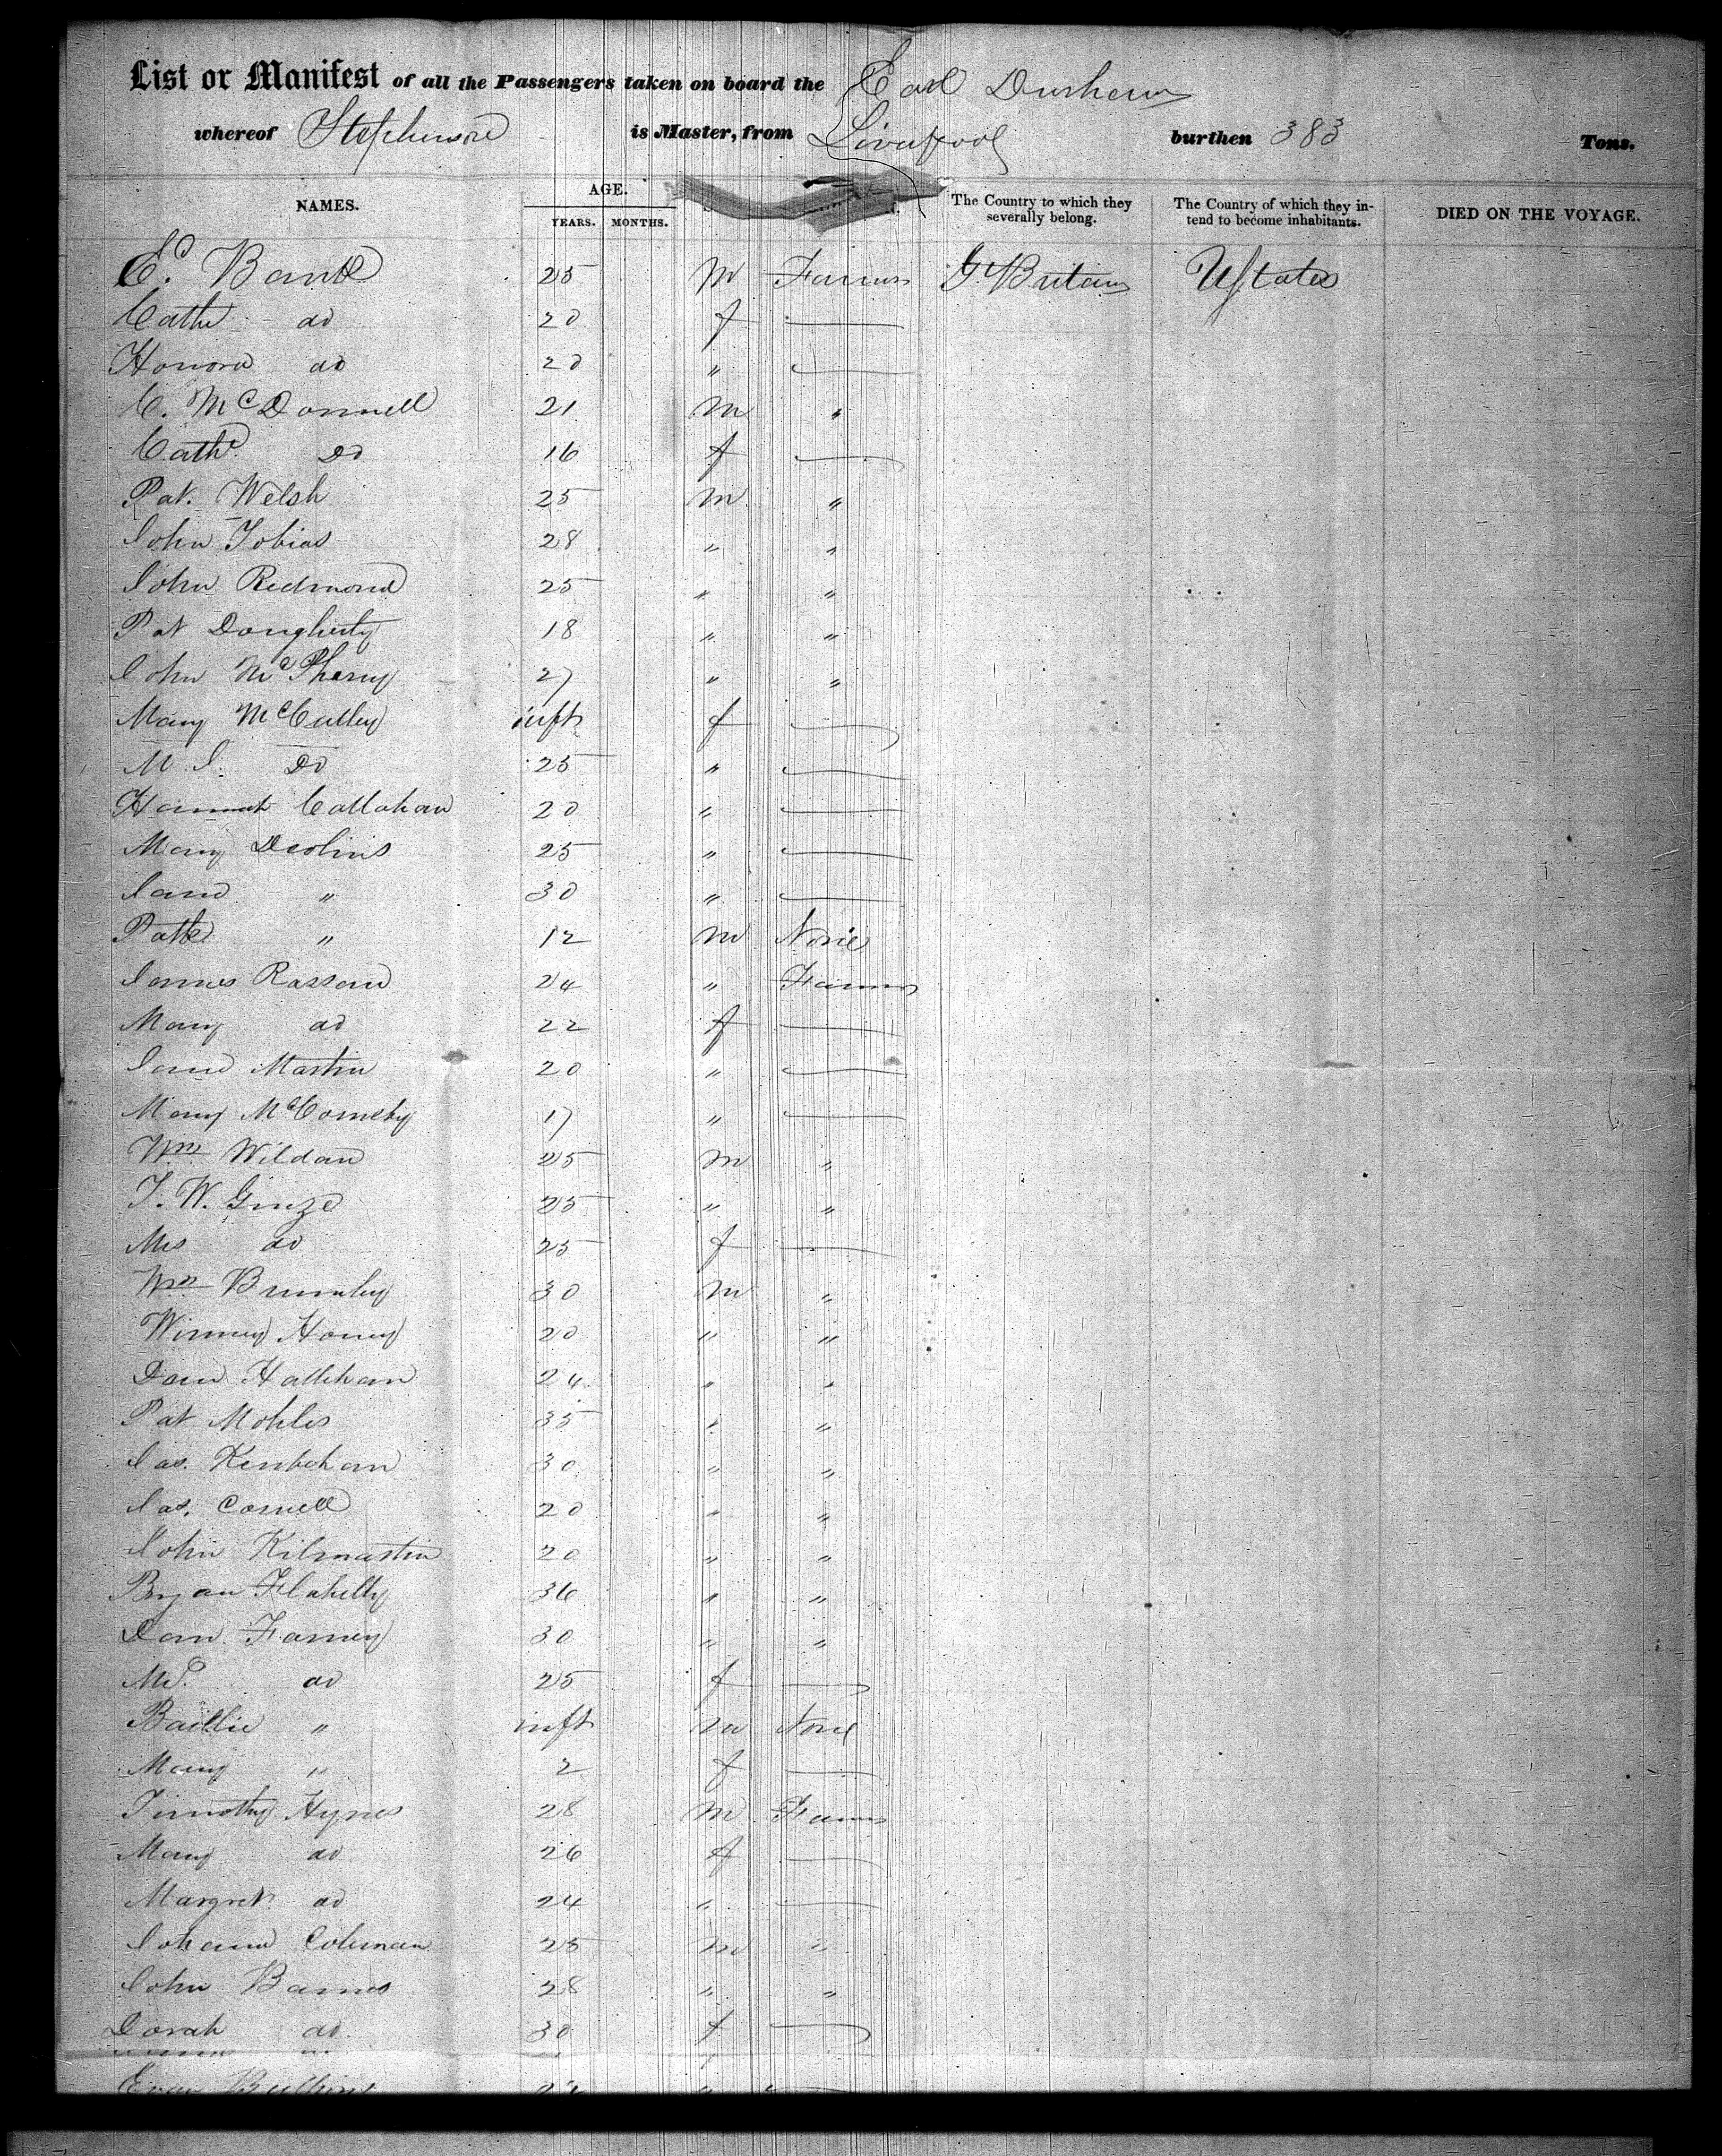 List or Manifest of all the Passengers taken on board the Earl Durham
whereof Stephenson is Master, from Liverpool burthen 383 Tons.
NAMES. AGE. YEARS. MONTHS. The Country to which they severally belong. The Country of which they intend to become inhabitants. DIED ON THE VOYAGE.
Ed. 25 m Farmer Gt Britain UStates
Cathe do 20 f
Honora do 20 "
C. McDonnell 21 m "
Cathe Do 16 f
Pat. Welsh 25 m "
John Tobias 28 " "
John Redmond 25 " "
Pat Dougherty 18 " "
John 27 " "
Mary McCulley inft f
M. J. Do 25 "
Hannah Callahan 20 "
Mary Deolins 25 "
Jane " 30 "
Patk " 12 m None
James Rassan 24 " Farmer
Mary do 22 f
Jane Martin 20 "
Mary 17 "
Wm Wildan 25 m "
T. W. 25 " "
Mrs do 25 f
Wm Brumley 30 m "
Winney Honey 20 " "
Danl 24 " "
Pat 35 " "
Jas. 30 " "
Jas. Cornell 20 " "
John Kilmartin 20 " "
Bryan Flahelly 36 " "
Danl Farney 30 " "
Mrs. do 25 f
Baillie " inft m None
Mary " 2 f
Timothy Hynes 28 m Farmer
Mary do 26 f
Margret do 24 "
Johanna Coleman 25 m "
John Barnes 28 " "
Dorah do 30 f